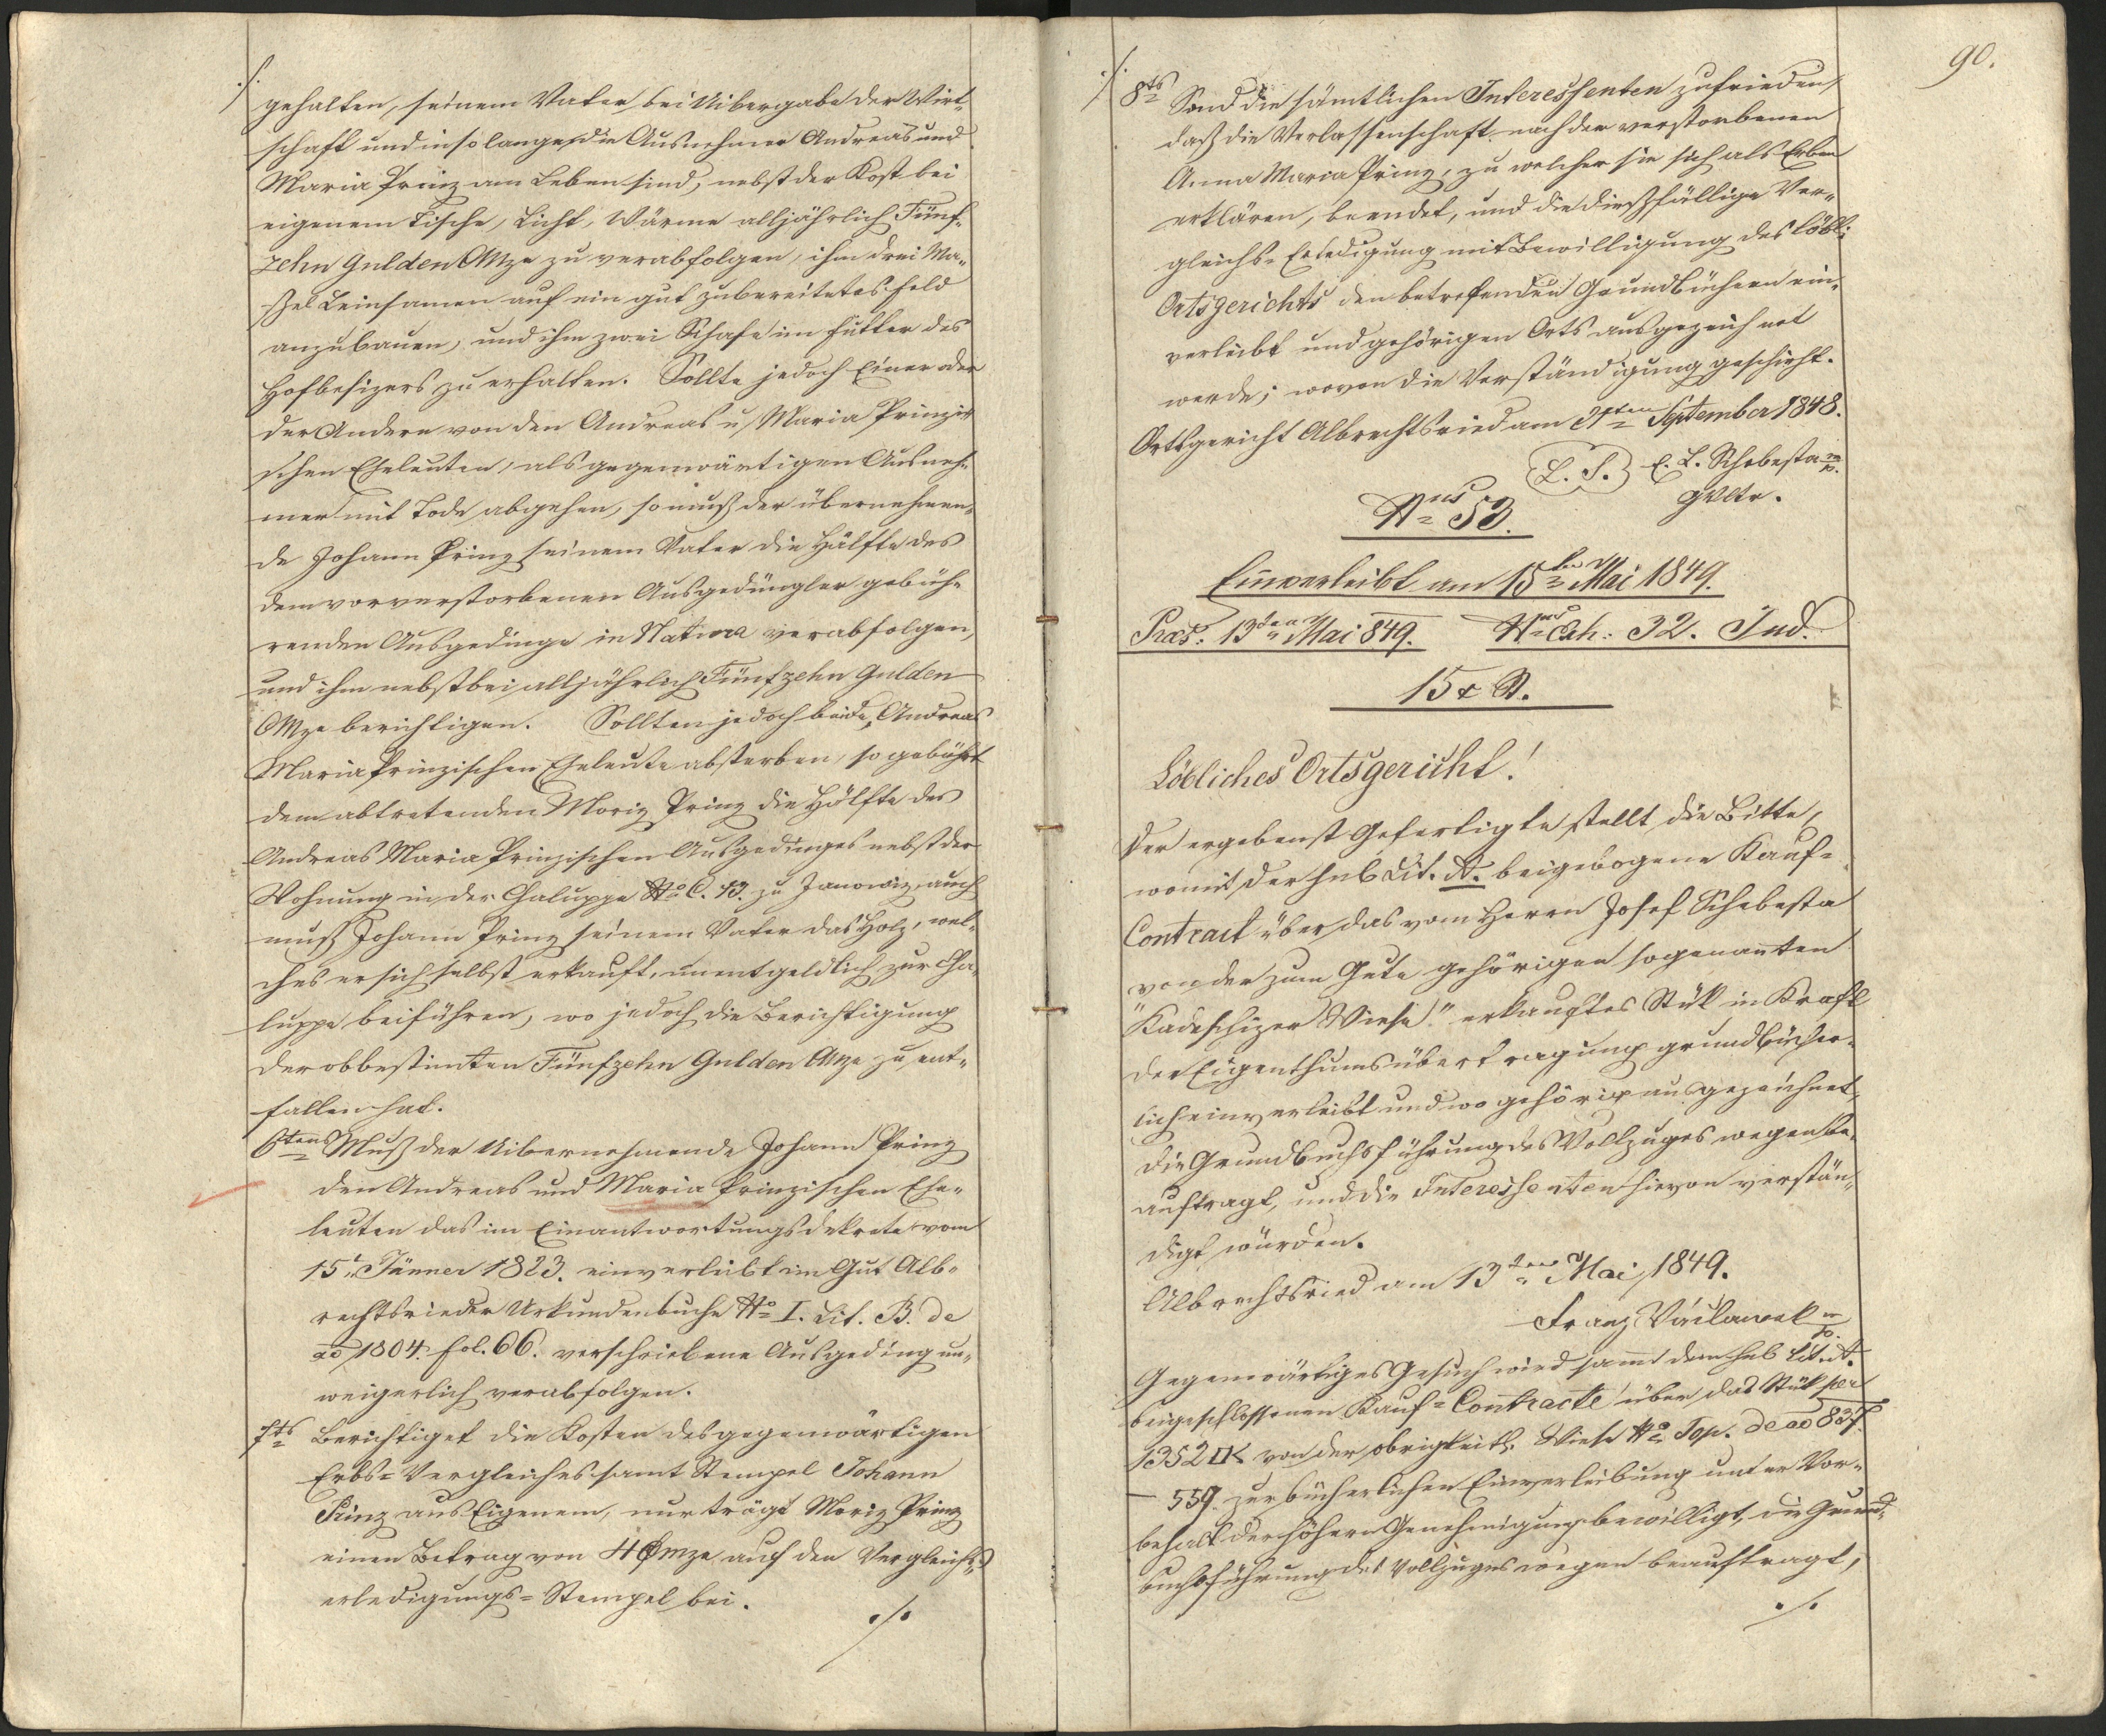 ./.
gehalten, seinem Vater bei Uibergabe der Wirt-
schaft und in solange die Ausnehmer Andreas und
Maria Prinz am Leben sind, nebst der Kost bei
eigenem Tische, Licht, Wärme alljährlich Fünf-
zehn Gulden CMze zu verabfolgen, ihm drei Ma-
ßel Leinsamen auf ein gut zubereitetes Feld
anzubauen, und ihm zwei Schafe im Futter des
Hofbesizers zu erhalten. Sollte jedoch Einer oder
der Andere von den Andreas u Maria Prinzi-
schen Eheleuten, als gegenwärtigen Ausneh-
mer mit Tode abgehen, so muß der übernehmen-
de Johann Prinz seinem Vater die Hälfte des
dem vorverstorbenen Ausgedüngler gebüh-
renden Ausgedinge in Natura verabfolgen,
und ihm nebstbei alljährlich Fünfzehn Gulden
CMze berichtigen. Sollten jedoch beide, Andreas
Maria Prinzischen Eheleute absterben, so gebührt
dem abtretenden Moriz Prinz die Hälfte des
Andreas Maria Prinzischen Ausgedinges nebst der
Wohnung in der Chaluppe No C. 13. zu Janowiz, auch
muß Johann Prinz seinem Vater das Holz, wel-
ches er sich selbst erkauft, unentgeldlich zur Cha-
luppe beiführen, wo jedoch die Berichtigung
der obbestimten Fünfzehn Gulden CMze zu ent-
fallen hat.
6tens Muß der Uibernehmende Johann Prinz
den Andreas und Maria Prinzischen Ehe-
leuten das im Einantwortungsdekrete vom
15t Jänner 1823. einverleibt im Gut Alb-
rechtsrieder Urkundenbuche No I. Lit. B. de
ao 1804. fol. 66. verschriebene Ausgeding un-
weigerlich verabfolgen.
7ts Berichtiget die Kosten des gegenwärtigen
Erbs-Vergleiches samt Stempel Johann
Prinz aus Eigenem, nur trägt Moriz Prinz
einen Betrag von 4 f Cmze auf den Vergleichs-
erledigungs-Stempel bei.
./.
90.
./.
8ts Sind die sämtlichen Interessenten zufrieden,
daß die Verlassenschaft nach der verstorbenen
Anna Maria Prinz, zu welcher sie sich als Erben
erklären, beendet, und die dießfällige Ver-
gleichs-Erledigung mit Bewilligung des löbl:
Ortsgerichts den betrefenden Grundbüchern ein-
verleibt und gehörigen Orts ausgezeichnet
werde; wovon die Verständigung geschieht.
Ortsgericht Albrechtsried am 1ten September 1848.
(L. S.) E. L. Schebesta mp.
GVltr.
Nus 53.
Einverleibt am 15ten Mai 1849.
Præs: 13ten Mai 849. Nus Exh: 32. Jud.
15 x St.
Löbliches Ortsgericht!
Der ergebenst Gefertigte stellt die Bitte,
womit der sub Lit. A. beigebogene Kauf-
Contract über das vom Herrn Josef Schebesta
von der zum Gute gehörigen sogenannten
"Kadeschizer Wiese." erkauftes Stük in Kraft
der Eigenthumsübertragung grundbücher-
lich einverleibt und wo gehörig ausgezeichnet,
die Grundbuchsführung des Vollzuges wegen be-
auftragt, und die Interessenten hievon verstän-
digt würden.
Albrechtsried am 13ten Mai 1849.
Franz Václawek mp.
Gegenwärtiges Gesuch wird samt dem sub Lit. A.
beigeschlossenen Kauf-Contracte über das Stük per
1352 □K von der obrigkeitl. Wiese No Top. de ao 837.
– 559. zur bücherlichen Einverleibung unter Vor-
behalt der höhern Genehmigung bewilligt, die Grund-
buchsführung des Vollzuges wegen beauftragt,
./.